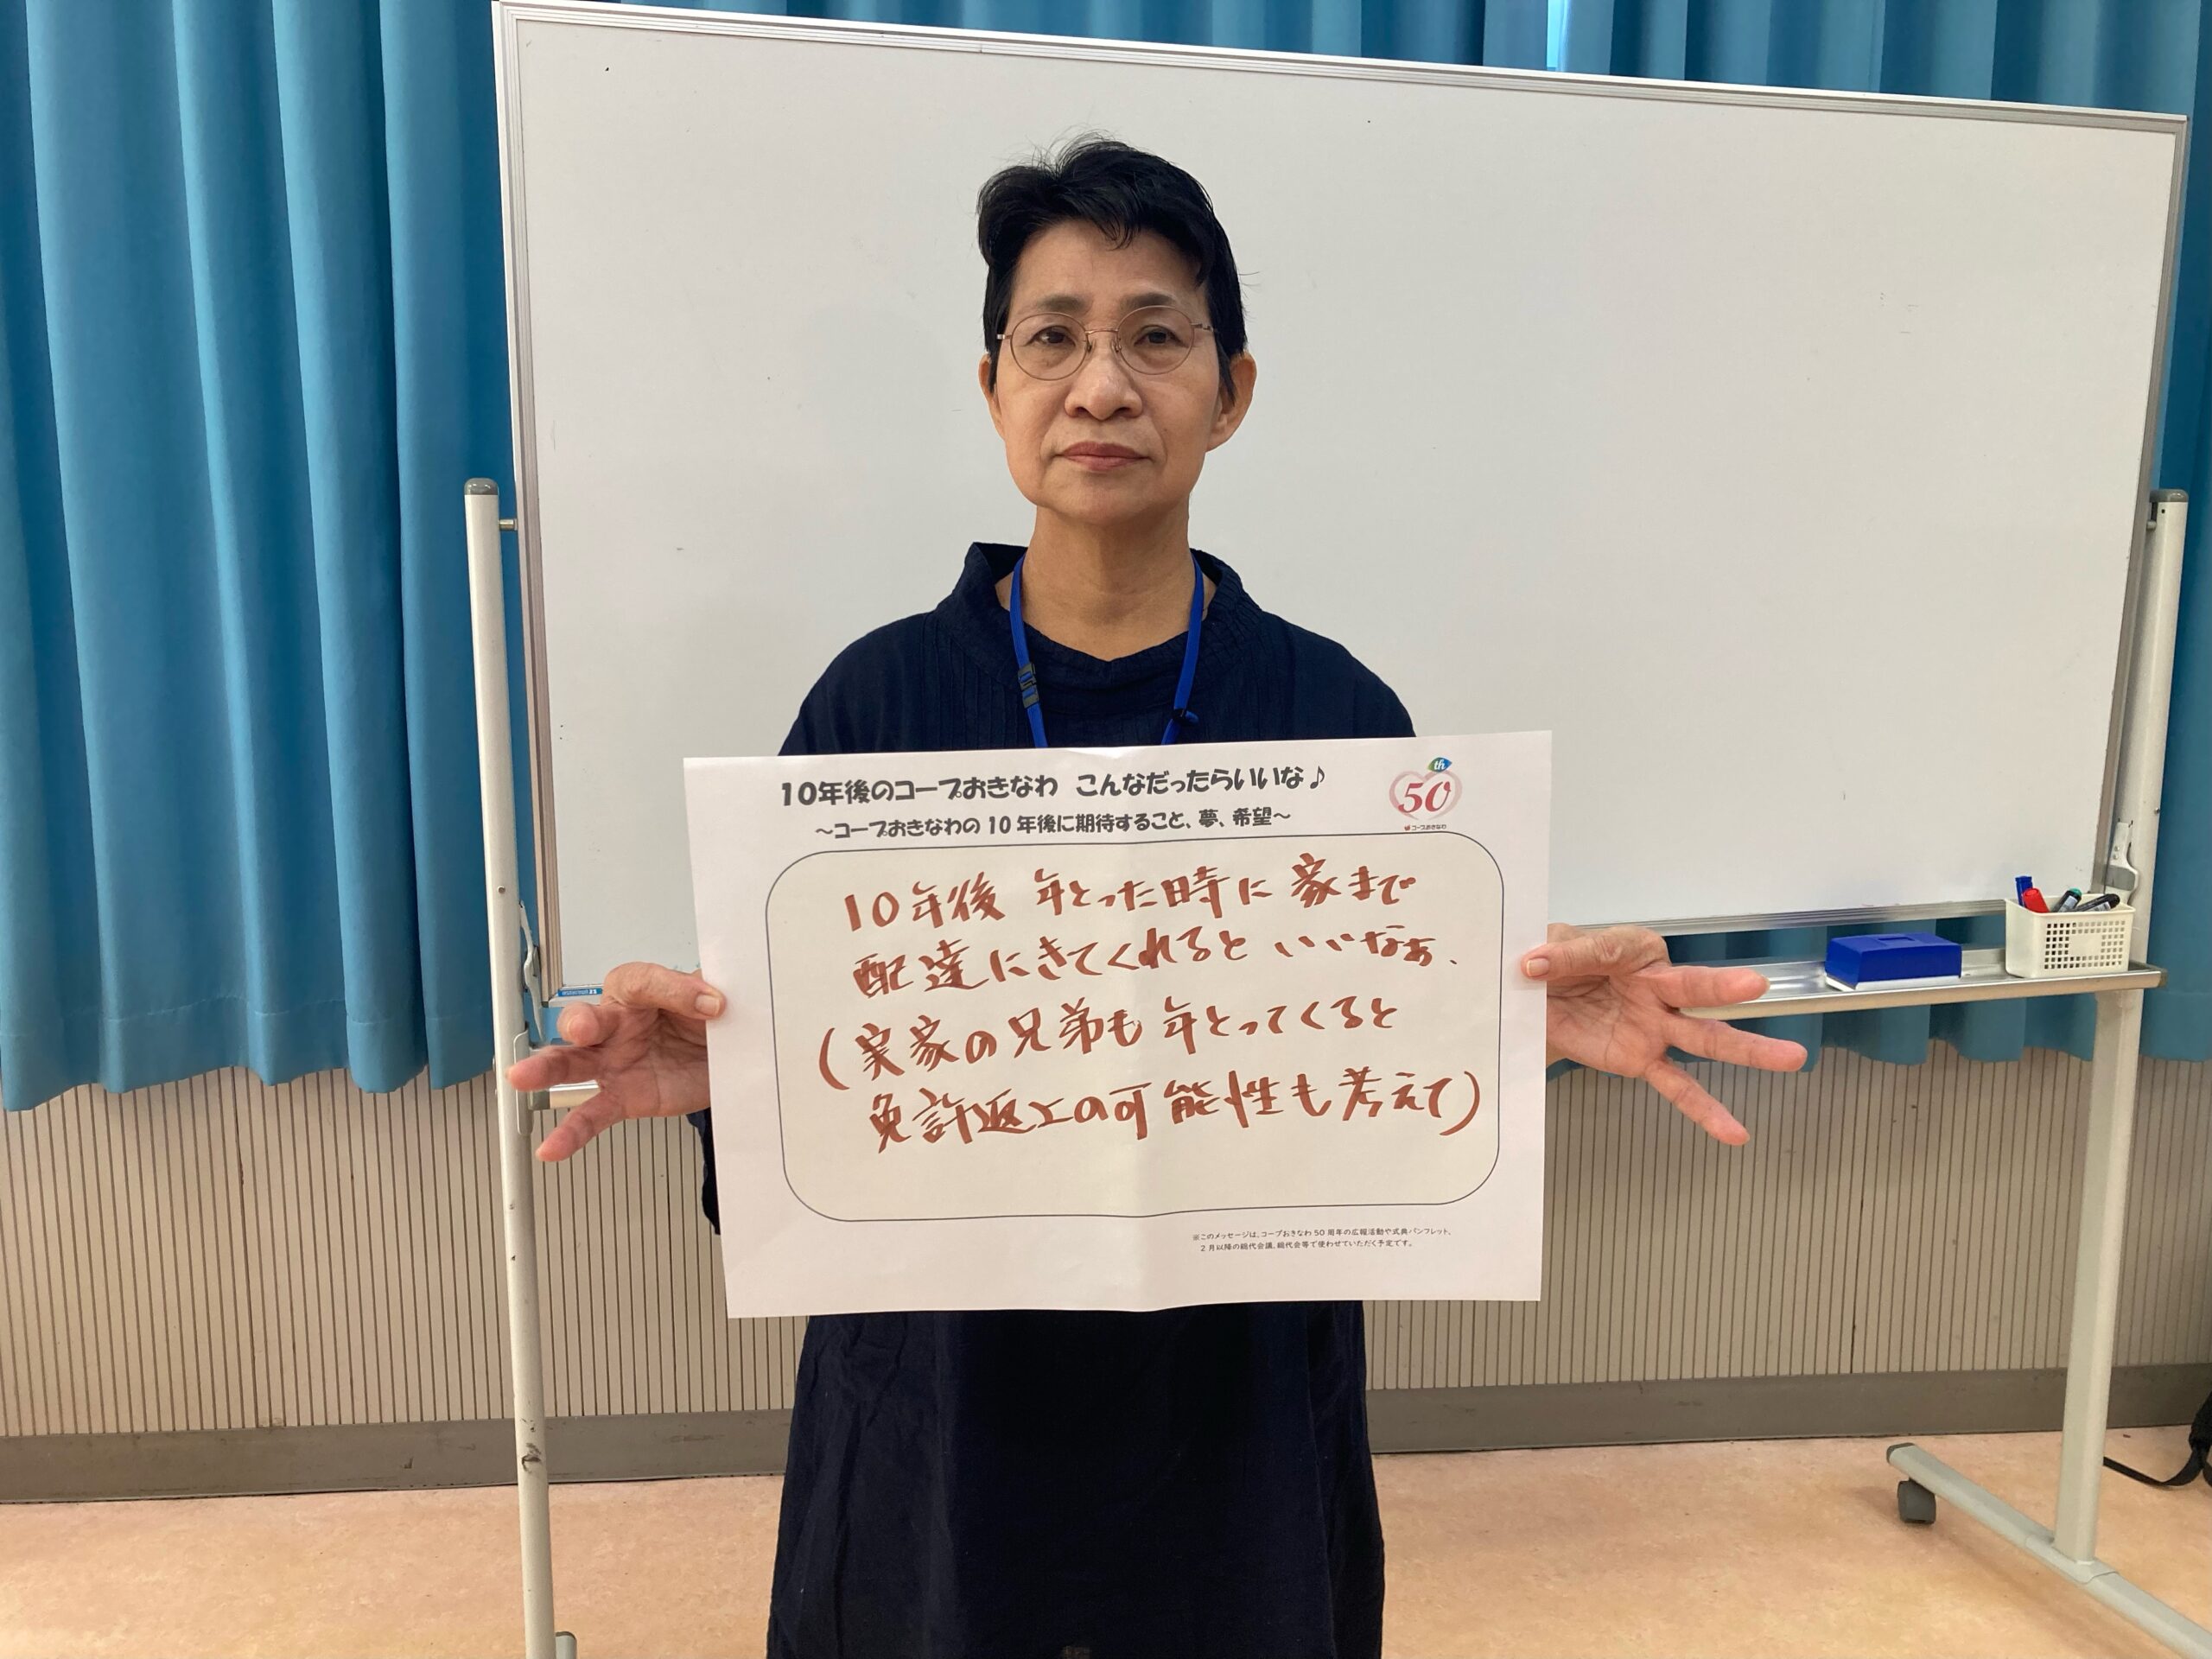 10年後のコープおきなわ こんなだったらいいな♪
～コープおきなわの10年後に期待すること、夢、希望～
th
50
コープおきなわ
10年後 年とった時に 家まで
配達にきてくれると いいなぁ、
(実家の兄弟も 年とってくると
免許返上の可能性も考えて)
※このメッセージは、コープおきなわ50周年の広報活動や式典パンフレット、
2月以降の総代会議、総代会等で使わせていただく予定です。